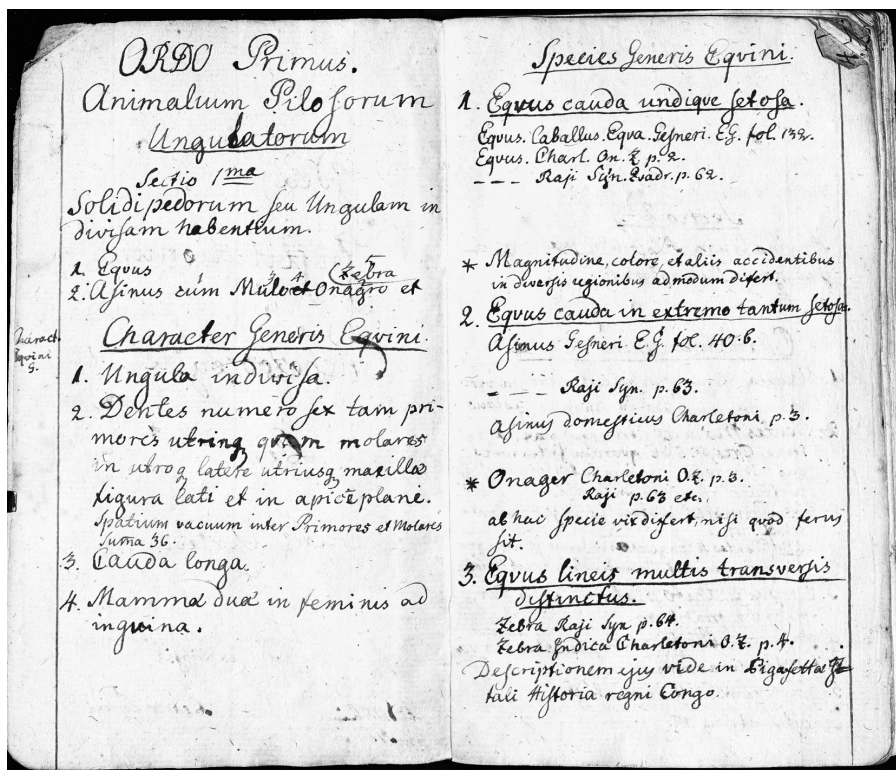 ORDO Primus.
Animalium Pilosorum
Ungulatorum
Sectio 1ma
Solidipedorum seu Ungulam in
divisam habentium.
1. Eqvus
5 Zebra
2. Asinus cum Mulo et Onagro et
3. 4.
Character Generis Eqvini.
Charact.
Eqvini
G.
1. Ungula indivisa.
2. Dentes numero sex tam pri-
mores utrinq qvam molares
in utroq latere utriusq maxillæ
figura lati et in apice plane.
Spatium vacuum inter Primores et Molares
Suma 36.
3. Cauda longa.
4. Mammæ duæ in feminis ad
inguina.
Species Generis Eqvini.
1. Eqvus cauda undiqve setosa.
Eqvus. Caballus. Eqva. Gesneri. E.G. fol. 132.
Eqvus. Charl. On. Z. p. 2.
--- Raji Syn. Qvadr. p. 62.
* Magnitudine, colore, et aliis accidentibus
in diversis regionibus admodum difert.
2. Eqvus cauda in extremo tantum setosa.
Asinus Gesneri. E.G. fol. 40.b.
--- Raji Syn. p. 63.
Asinus domesticus Charletoni p. 3.
* Onager Charletoni O.Z. p. 3.
Raji p. 63 etc.
ab hac specie vix differt, nisi qvod ferus
sit.
3. Eqvus lineis multis transversis
distinctus.
Zebra Raji Syn p. 64.
Zebra Indica Charletoni O.Z. p. 4.
Descriptionem ejus vide in Pigasetta It
tali Historia regni Congo.